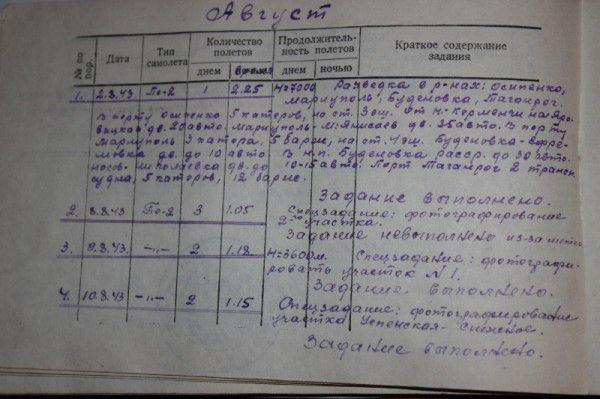 Август
№ по пор. Дата Тип самолета Количество полетов Продолжительность полетов Краткое содержание задания
днем время днем ночью
1. 2.8.43 Пе-2 1 2.25 Н=7000 Разведка в р-нах: Осипенко,
Мариуполь, Буденовка, Таганрог.
В порту Осипенко 5 катеров, на ст. 3 эш. От Н-
дв. 20 авто. Мариуполь- дв. 35 авто. В порту
Мариуполь 3 катера, 5 барж, на ст. 4 эш. Буденовка-Ефре-
мовка дв. до 10 авто. В н.п. Буденовка расср. до 30 авто.
дв. до 10-15 авто. Порт Таганрог 2 трансп.
судна, 5 катеров, 12 барж.
Задание выполнено.
2. 8.8.43 Пе-2 3 1.05 Спецзадание: фотографирование
участка.
Задание невыполнено из-за метео.
3. 9.8.43 -"- 2 1.18 Н=3600м. Спецзадание: фотографи-
ровать участок №1.
Задание выполнено.
4. 10.8.43 -"- 2 1.15 Спецзадание: фотографирование
участка Успенская-Снежное.
Задание выполнено.